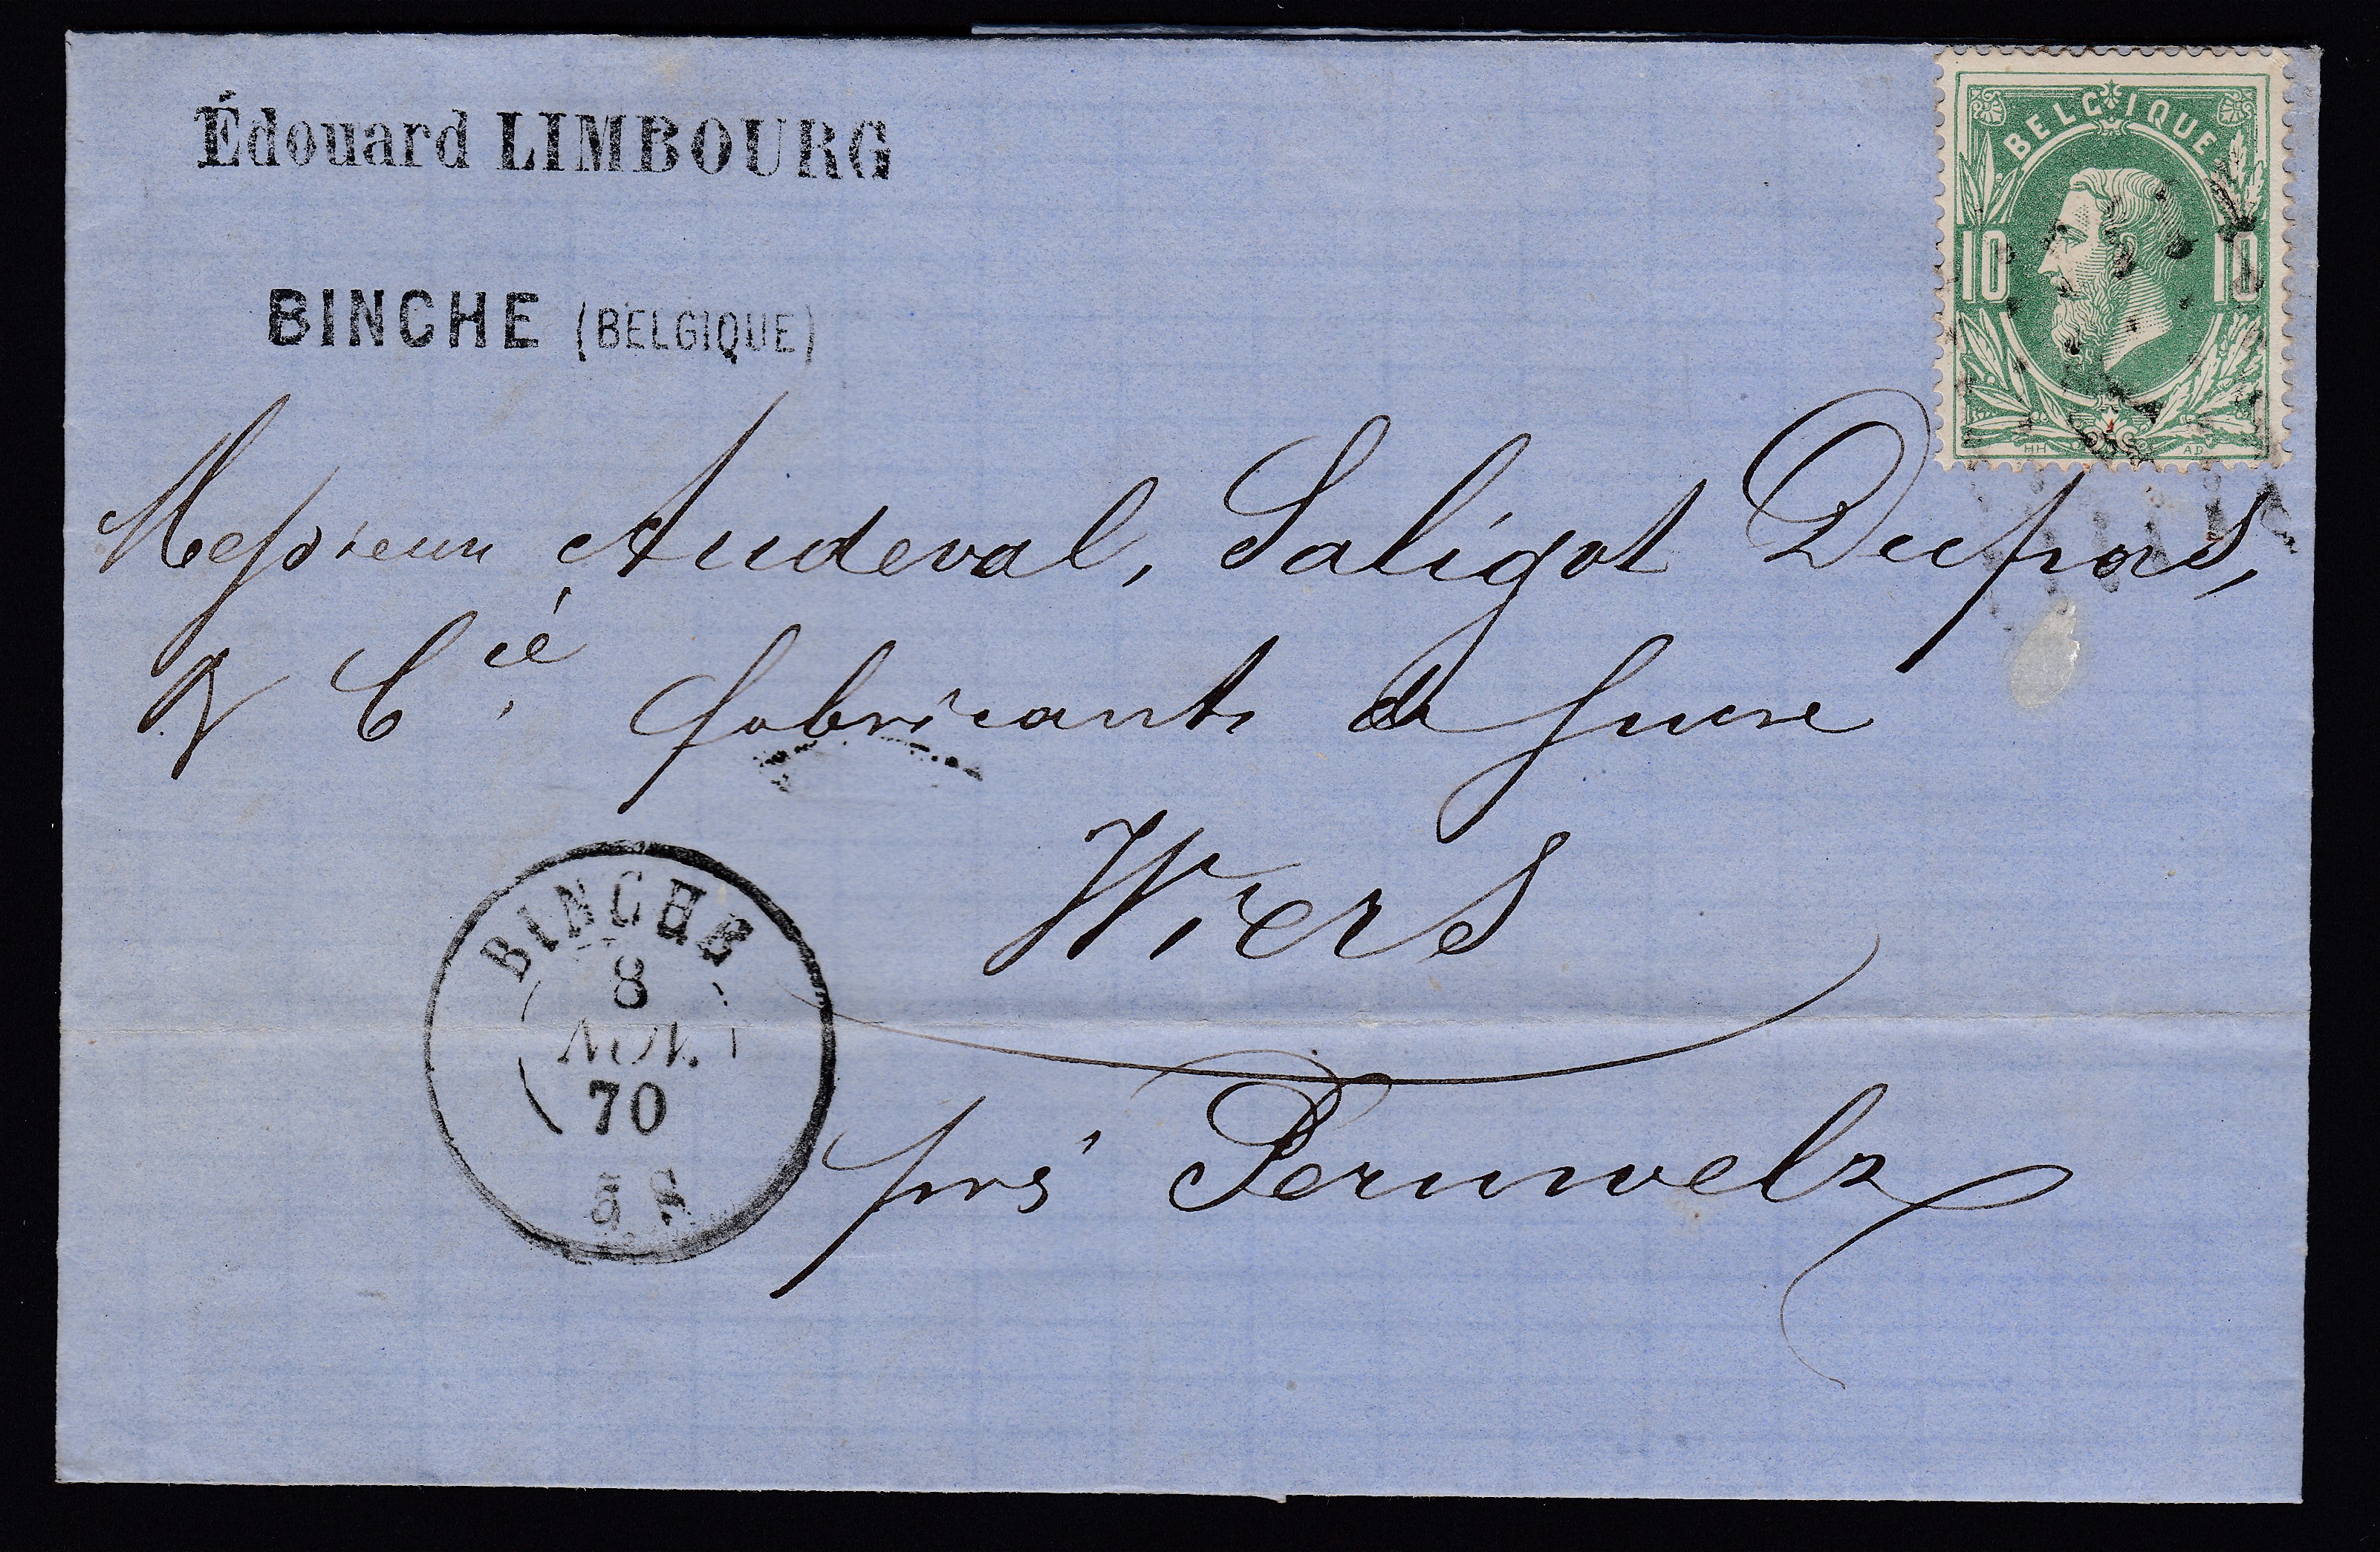 Édouard LIMBOURG
BELGIQUE
10 10
HH AD
BINCHE (BELGIQUE)
Messieurs Audeval, Saligot Dupas,
& Cie fabricants de Sucre
Wiers
BINCHE
8
NOV.
70
près Peruwelz